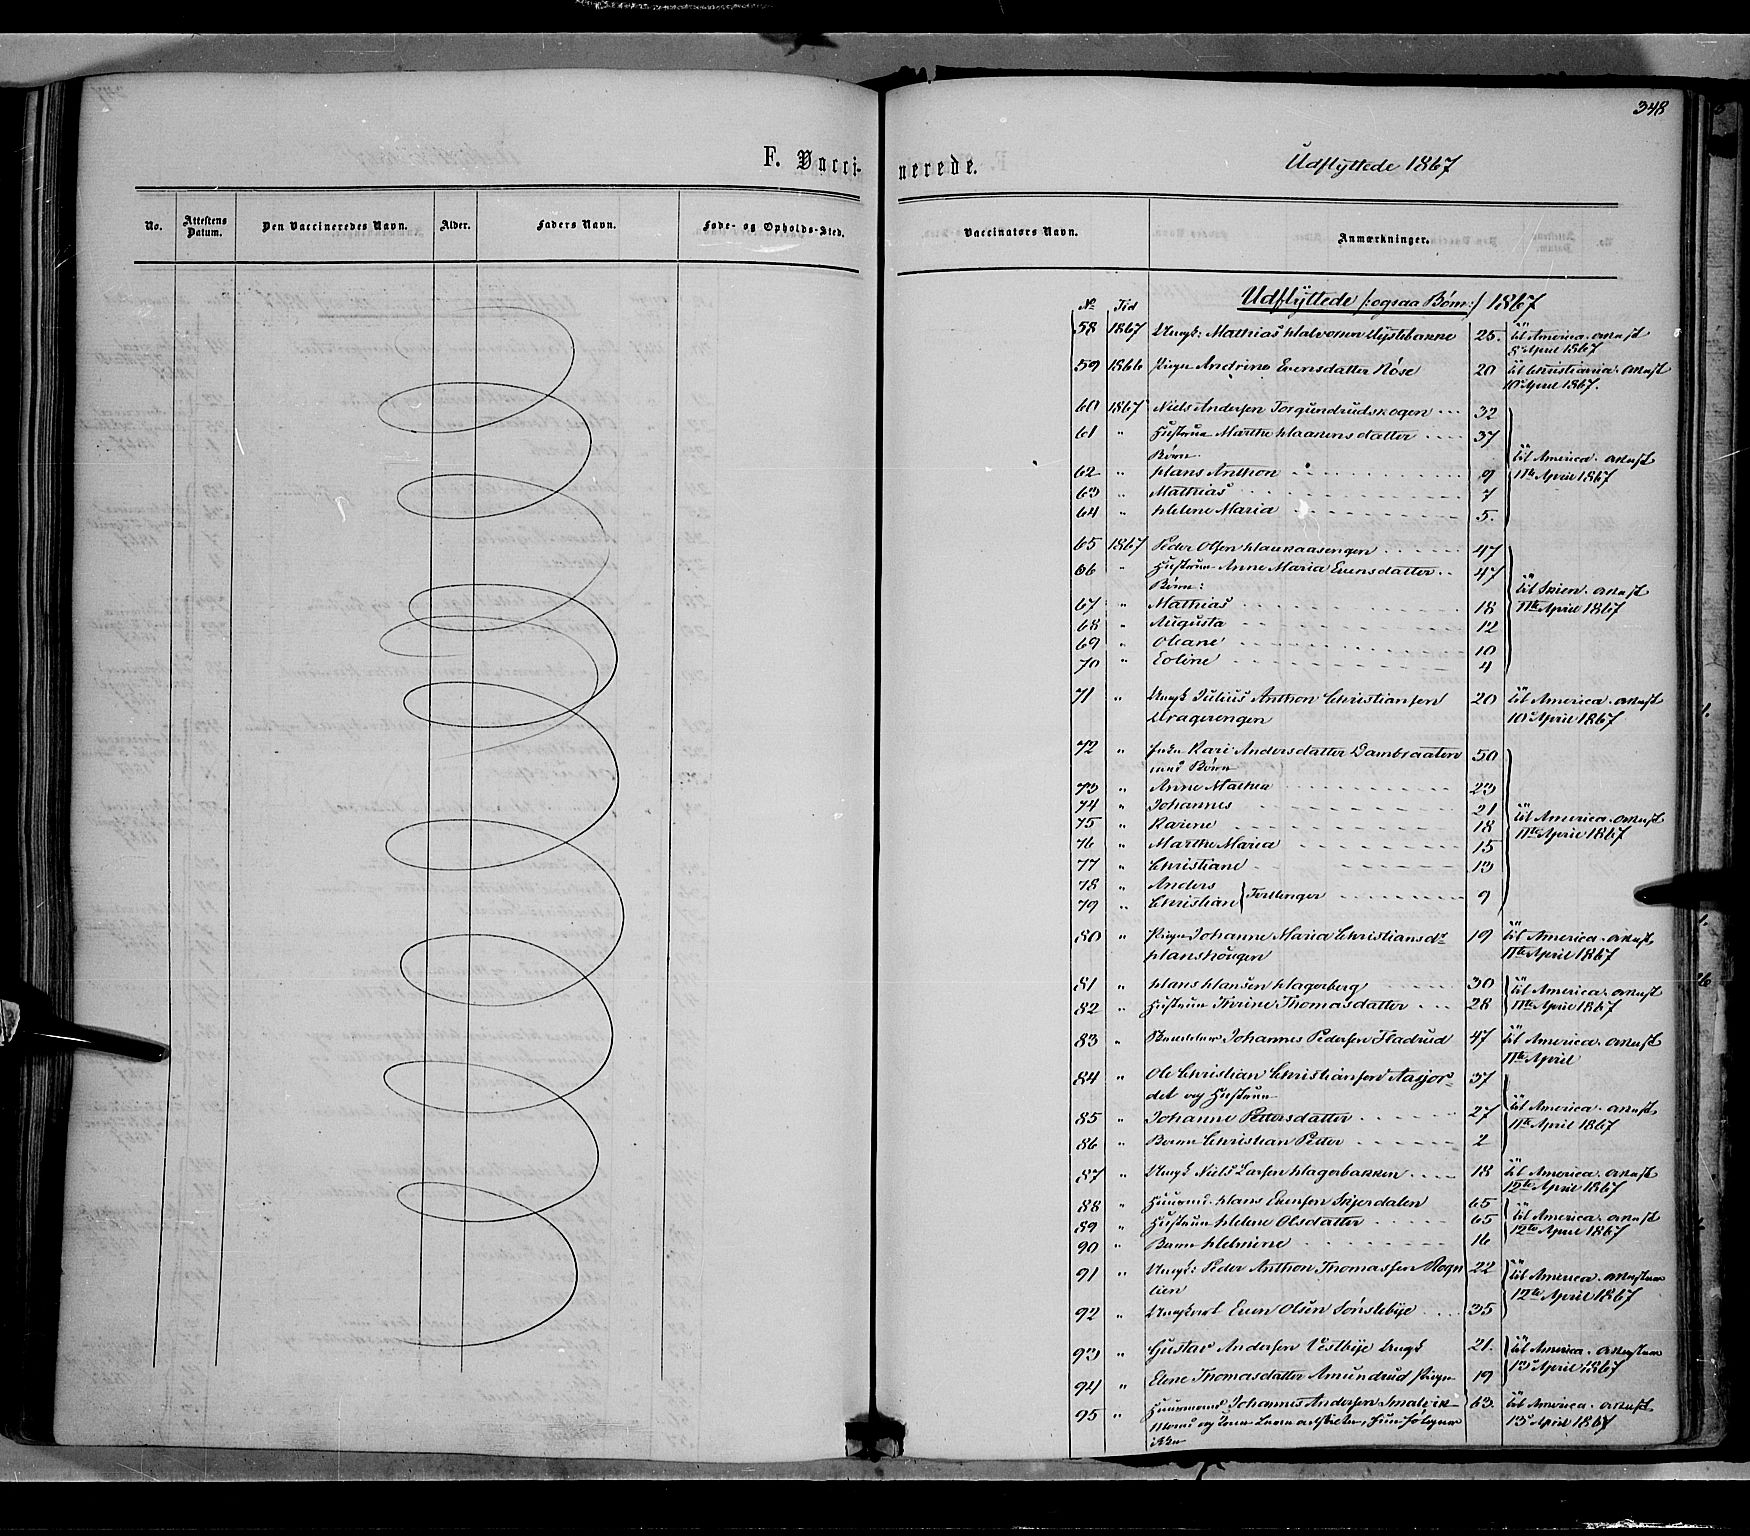 348
F. Vacci-
nerede.
Udflyttede 1867
No.
Attestens Datum.
Den Vaccineredes Navn.
Alder.
Faders Navn.
Føde- og Opholds-Sted.
Vaccinators Navn.
Anmærkninger.
Udflyttede /: ogsaa Børn :/ 1867
No Tid
58 1867 Ungk: Mathias Halvorsen 25. til America. attest
8de April 1867
59 1866 Pigen Andrine Evensdatter Røse 20 til Christiania. attest
10de April 1867.
60 1867 Niels Andersen Torgundrudskogen 32
61 " Hustrue Marthe Haakensdatter 37
Børn til America. attest
62 " Hans Anthon 9 11te April 1867
63 " Mathias 7
64 " Helene Maria 5.
65 1867 Peder Olsen Haukaasengen 47
66 " Hustrue Anne Maria Evensdatter 47
Børn: til Skien. attest
67 " Mathias 18 11te April 1867
68 " Augusta 12
69 " Oleane 10
70 " Eoline 4
71 " Ungk Julius Anthon Christiansen 20 til America. attest
Dragerengen 10de April 1867
72 " Enke Kari Andersdatter Dambraaten 50
med Børn
73 " Anne Mathea 23
74 " Johannes 21 til America. attest
75 " Karine 18 11te April 1867
76 " Marthe Maria 15
77 " Christiane 13
78 " Anders
79 " Christian } Tvillinger 9
80 " Pigen Johanne Maria Christiansdr 19 til America. attest
Hanshougen 11te April 1867
81 " Hans Hansen Hagerberg 30 til America. attest
82 " Hustrue Therine Thomasdatter 28 11te April 1867
83 " Johannes Pedersen Fladrud 47 til America. attest
11te April
84 " Ole Christian Christiansen Aasjor- 37
det og Hustrue til America. attest
85 " Johanne Pettersdatter 27 11te April 1867
86 " Barn Christian Petter 2
87 " Ungk Niels Larsen Hagerbakken 18 til America. attest
12te April 1867
88 " Huusmd. Hans Evensen Skjerdalen 65
89 " Hustrue Helene Olsdatter 65 til America. attest
90 " Barn Helmine 16 12te April 1867
91 " Ungk: Peder Anthon Thomassen Rogn 22 til America.
lien 12te April 1867
92 " Even Olsen Sønstebye 35
93 " Gustav Andersen Vestbye Ungk 21. til America.
13de April 1867
94 " Elene Thomasdatter Amundrud Pigen 19
95 " Huusmand Johannes Andersen 63. til America. attest
13de April 1867